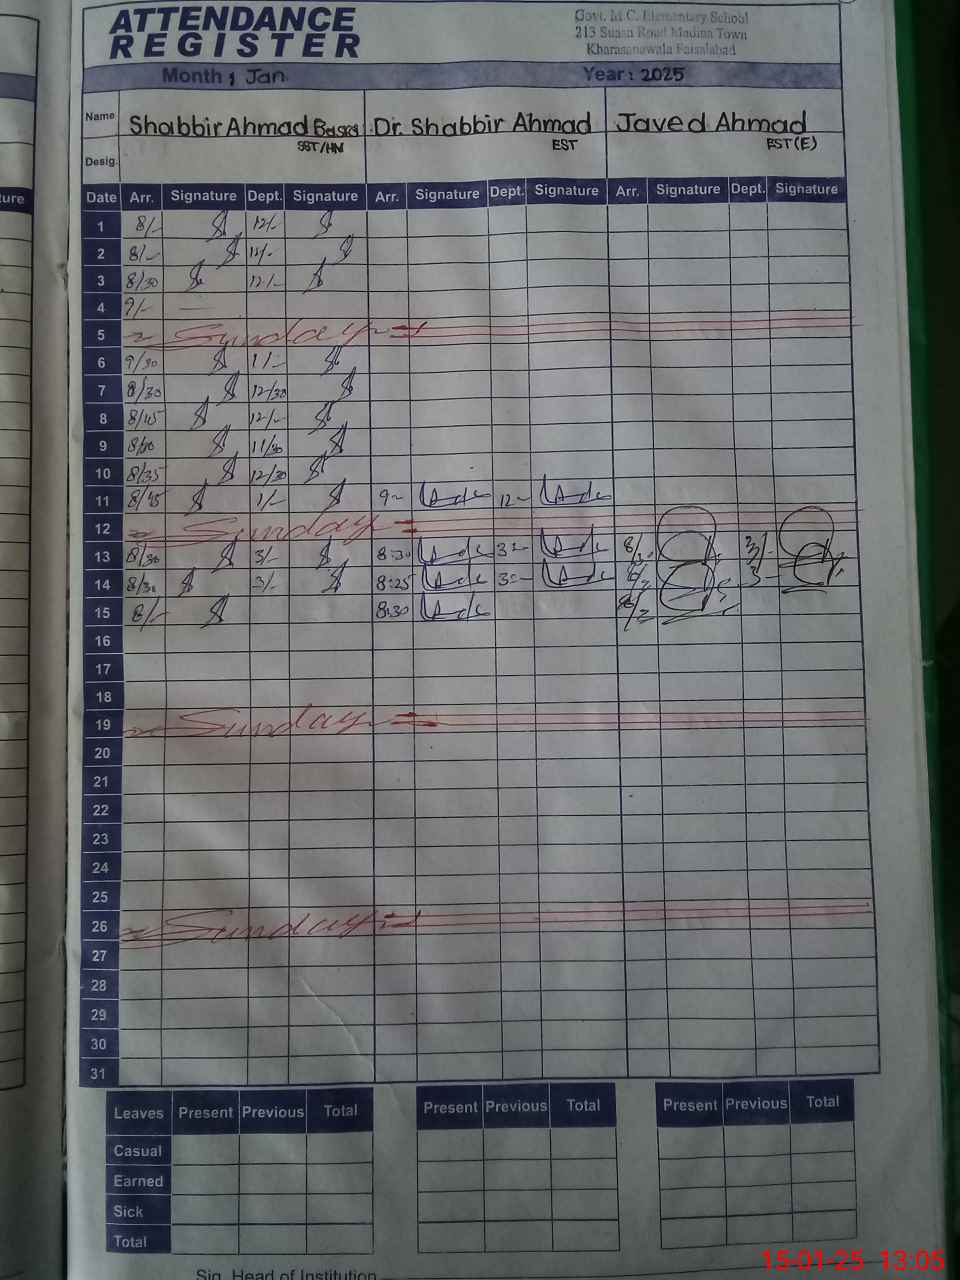 ATTENDANCE
REGISTER
Govt. M.C. Elementary School
213 Susan Road Madina Town
Kharasanawala Faisalabad
Month : Jan Year : 2025
Name Shabbir Ahmad Dr. Shabbir Ahmad Javed Ahmad
SST/HM EST EST(E)
Desig.
Date Arr. Signature Dept. Signature Arr. Signature Dept. Signature Arr. Signature Dept. Signature
1 8/- 12/-
2 8/-
3 8/30 12/-
4 9/-
5 Sunday
6 9/30 1/-
7 8/30 12/30
8 8/45 12/-
9 11/30
10 8/35 12/30
11 8/45 1/- 9- 12-
12 Sunday
13 8/30 3/- 8:30 3- 3/-
14 8/30 3/- 8:25 3- 3-
15 8/- 8:30
16
17
18
19 Sunday
20
21
22
23
24
25
26 Sunday
27
28
29
30
31
Leaves Present Previous Total Present Previous Total Present Previous Total
Casual
Earned
Sick
Total
Sig. Head of Institution
15-01-25 13:05